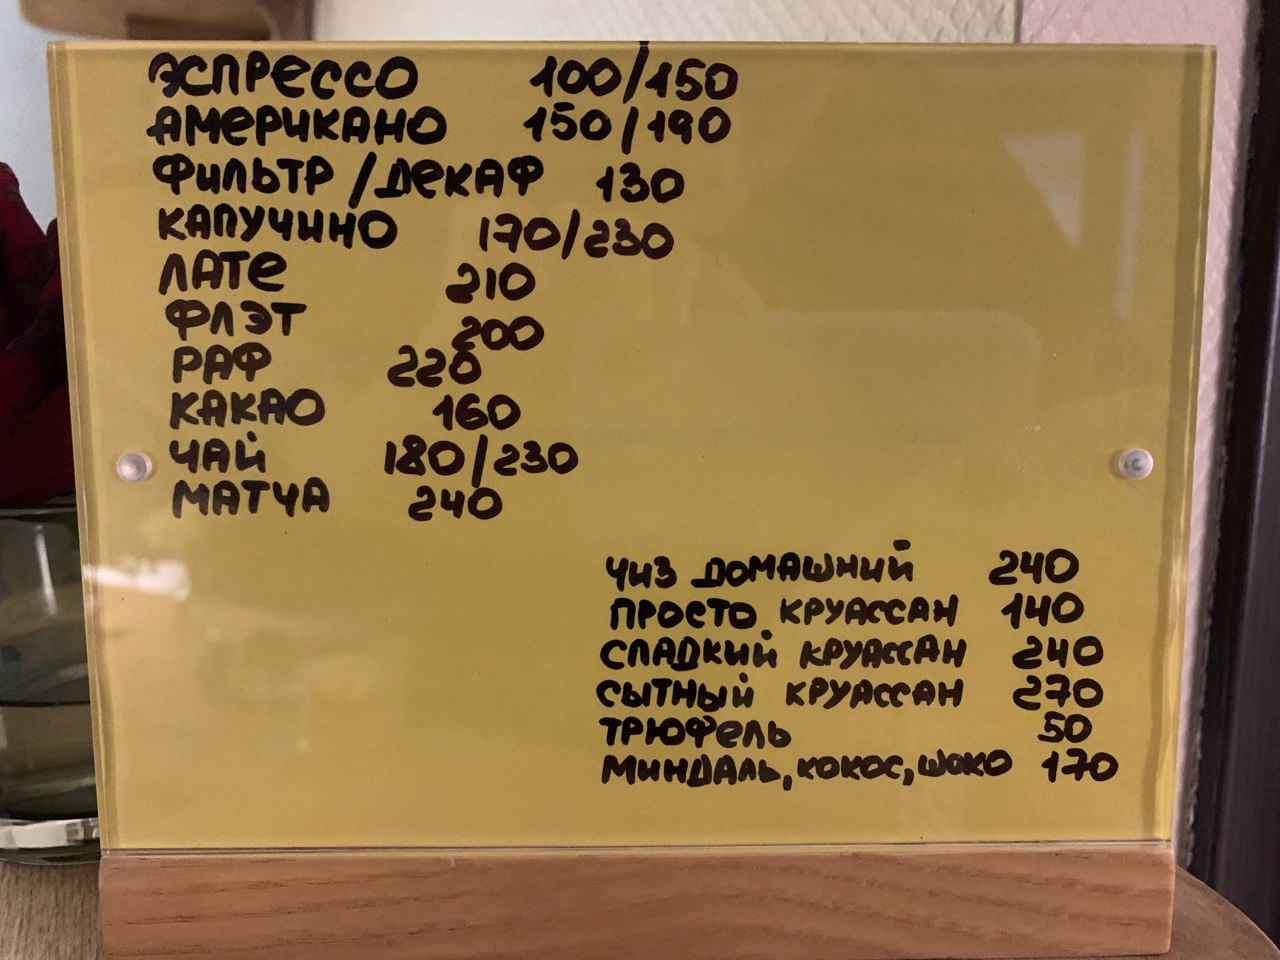 ЭСПРЕССО 100/150
АМЕРИКАНО 150/190
ФИЛЬТР/ДЕКАФ 130
КАПУЧИНО 170/230
ЛАТЕ 210
ФЛЭТ 200
РАФ 220
КАКАО 160
ЧАЙ 180/230
МАТЧА 240
ЧИЗ ДОМАШНИЙ 240
ПРОСТО КРУАССАН 140
СЛАДКИЙ КРУАССАН 240
СЫТНЫЙ КРУАССАН 270
ТРЮФЕЛЬ 50
МИНДАЛЬ, КОКОС, ШОКО 170